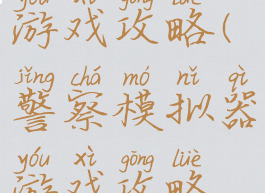 yóu xì gōng lüè
游戏攻略(
jǐng chá mó nǐ qì
警察模拟器
yóu xì gōng lüè
游戏攻略